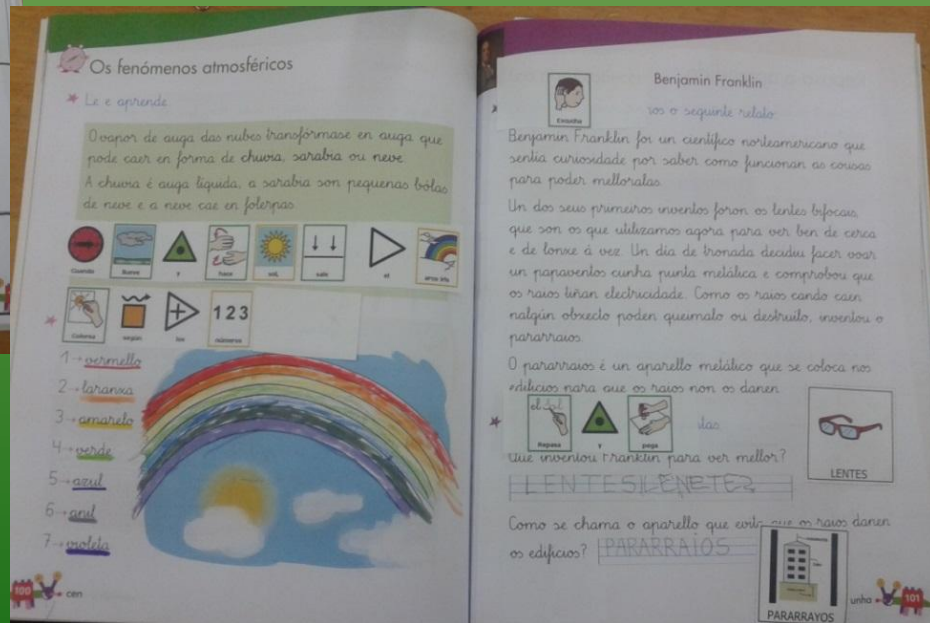 Os fenómenos atmosféricos
Le e aprende
O vapor de auga das nubes transfórmase en auga que
pode caer en forma de chuvia, sarabia ou neve.
A chuvia é auga líquida, a sarabia son pequenas bólas
de neve e a neve cae en folerpas.
Cuando llueve y hace sol, sale el arco iris
Colorea según los números
123
1→ vermello
2→ laranxa
3→ amarelo
4→ verde
5→ azul
6→ anil
7→ violeta
100 cen
Benjamin Franklin
Escucha
sos o seguinte relato.
Benjamin Franklin foi un científico norteamericano que
sentía curiosidade por saber como funcionan as cousas
para poder melloralas.
Un dos seus primeiros inventos foron os lentes bifocais,
que son os que utilizamos agora para ver ben de cerca
e de lonxe á vez. Un día de tronada decidiu facer voar
un papaventos cunha punta metálica e comprobou que
os raios tiñan electricidade. Como os raios cando caen
nalgún obxecto poden queimalo ou destruílo, inventou o
pararraios.
O pararraios é un aparello metálico que se coloca nos
edificios para que os raios non os danen.
Repasa y pega
das
Que inventou Franklin para ver mellor?
LENTES
LENTES
Como se chama o aparello que evita que os raios danen
os edificios? PARARRAIOS
PARARRAYOS
unha 101